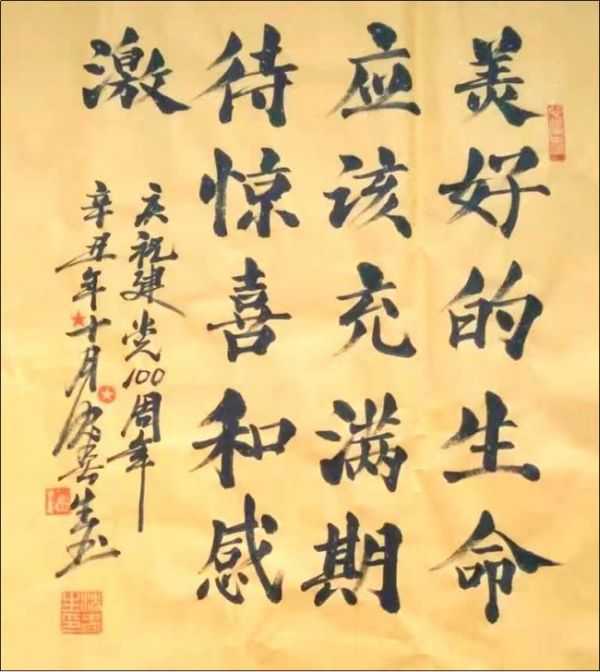 美好的生命
应该充满期
待惊喜和感
激
庆祝建党100周年
辛丑年十月善生书